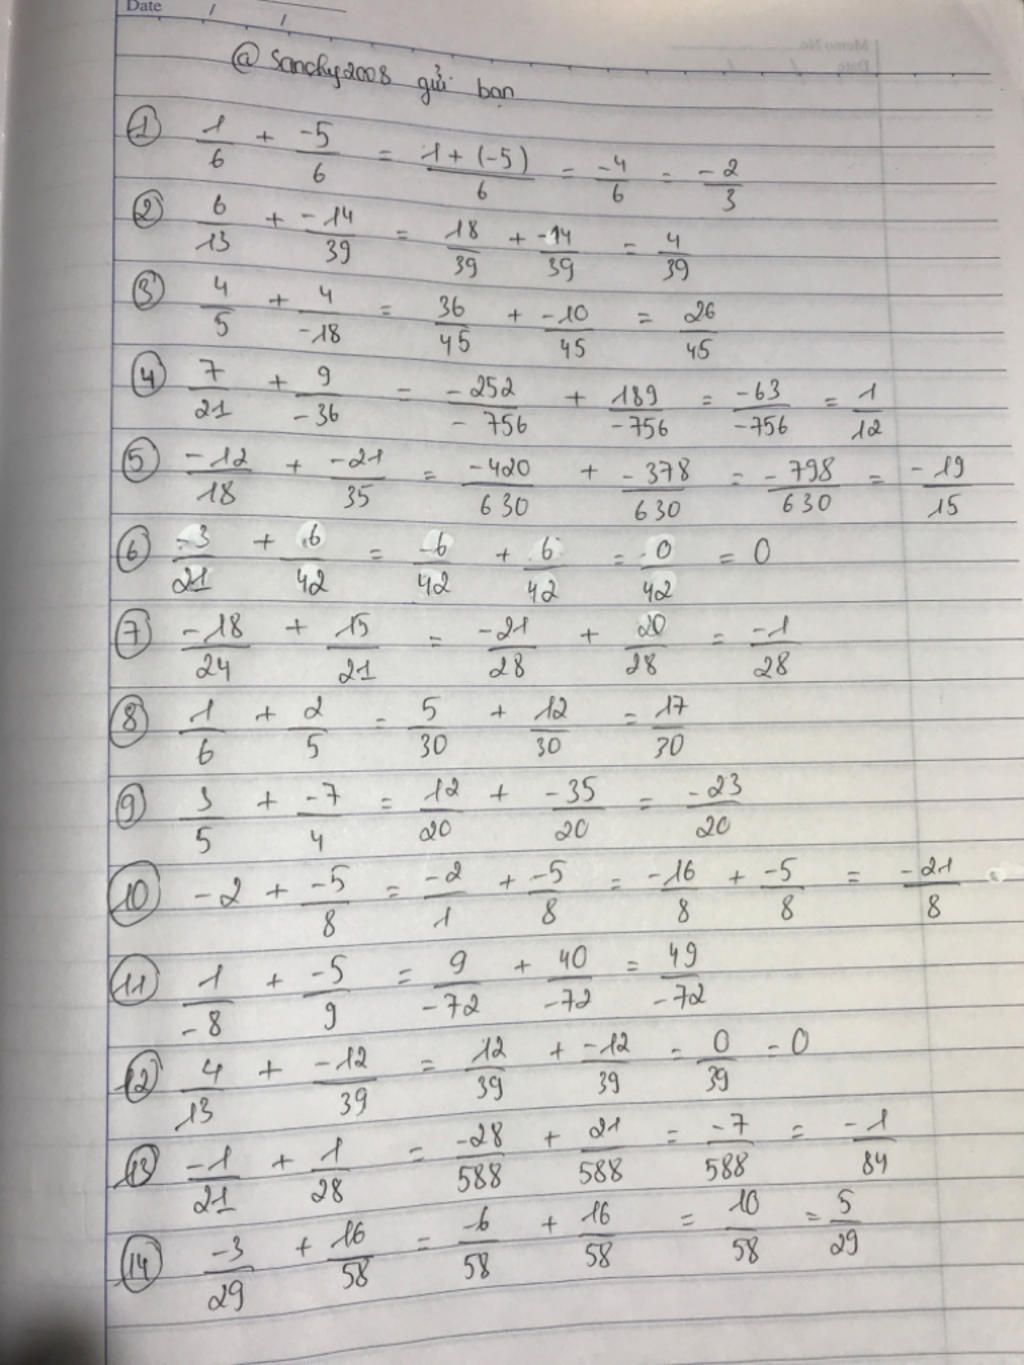 Date / /
Memo No.
Date / /
@ Sancky2008 gửi bạn
① 1/6 + -5/6 = 1 + (-5)/6 = -4/6 = -2/3
② 6/13 + -14/39 = 18/39 + -14/39 = 4/39
③ 4/5 + 4/-18 = 36/45 + -10/45 = 26/45
④ 7/21 + 9/-36 = -252/-756 + 189/-756 = -63/-756 = 1/12
⑤ -12/18 + -21/35 = -420/630 + -378/630 = -798/630 = -19/15
⑥ -3/21 + 6/42 = -6/42 + 6/42 = 0/42 = 0
⑦ -18/24 + 15/21 = -21/28 + 20/28 = -1/28
⑧ 1/6 + 2/5 = 5/30 + 12/30 = 17/30
⑨ 3/5 + -7/4 = 12/20 + -35/20 = -23/20
⑩ -2 + -5/8 = -2/1 + -5/8 = -16/8 + -5/8 = -21/8
⑪ 1/-8 + -5/9 = 9/-72 + 40/-72 = 49/-72
⑫ 4/13 + -12/39 = 12/39 + -12/39 = 0/39 = 0
⑬ -1/21 + 1/28 = -28/588 + 21/588 = -7/588 = -1/84
⑭ -3/29 + 16/58 = -6/58 + 16/58 = 10/58 = 5/29